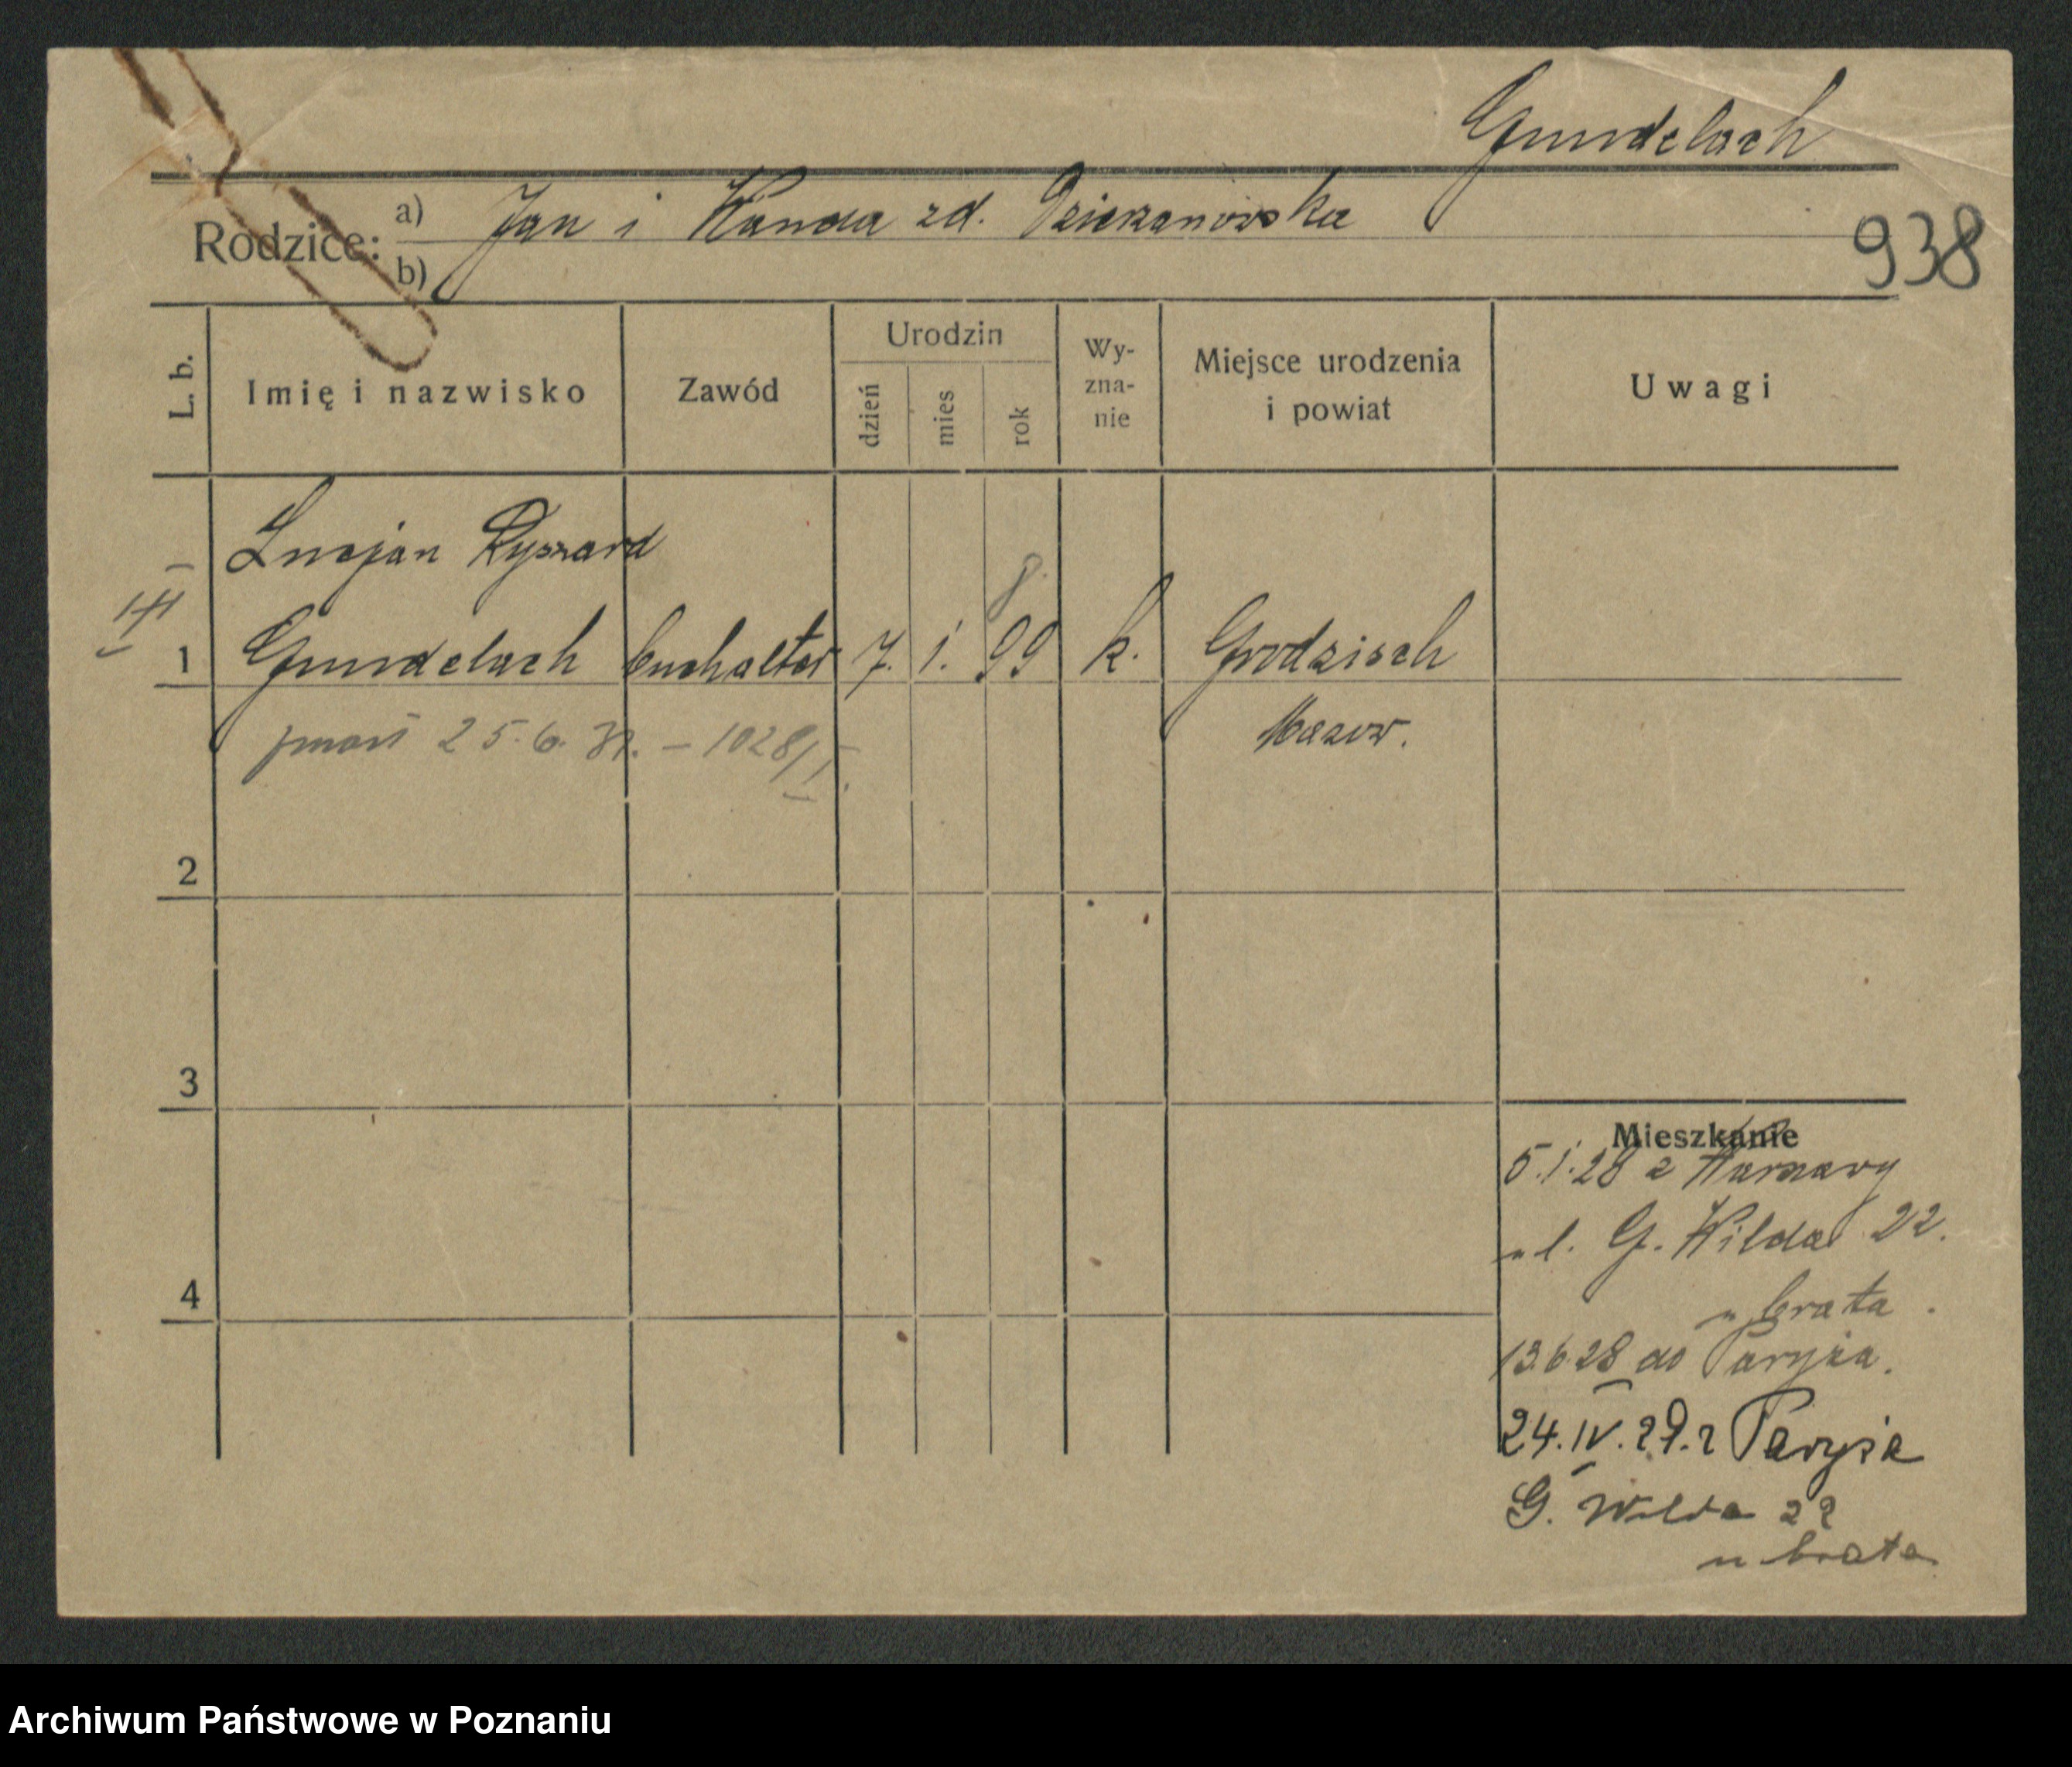 Gundelach
Rodzice: a) Jan i Wanda zd. Dziekanowska
b)
938
L. b.
Imię i nazwisko
Zawód
Urodzin
dzień
mies
rok
Wy-
zna-
nie
Miejsce urodzenia
i powiat
Uwagi
Lucjan Ryszard
8.
1 Gundelach buchalter 7. 1. 99 k. Grodzisch
Mazow.
25.6. 31. – 1028/I.
2
3
4
Mieszkanie
5.1.28 z Warszawy
ul. G. Wilda 22.
u brata.
13.6.28 do Paryża.
24.IV.29. z Paryża
G. Wilda 22
u brata
Archiwum Państwowe w Poznaniu